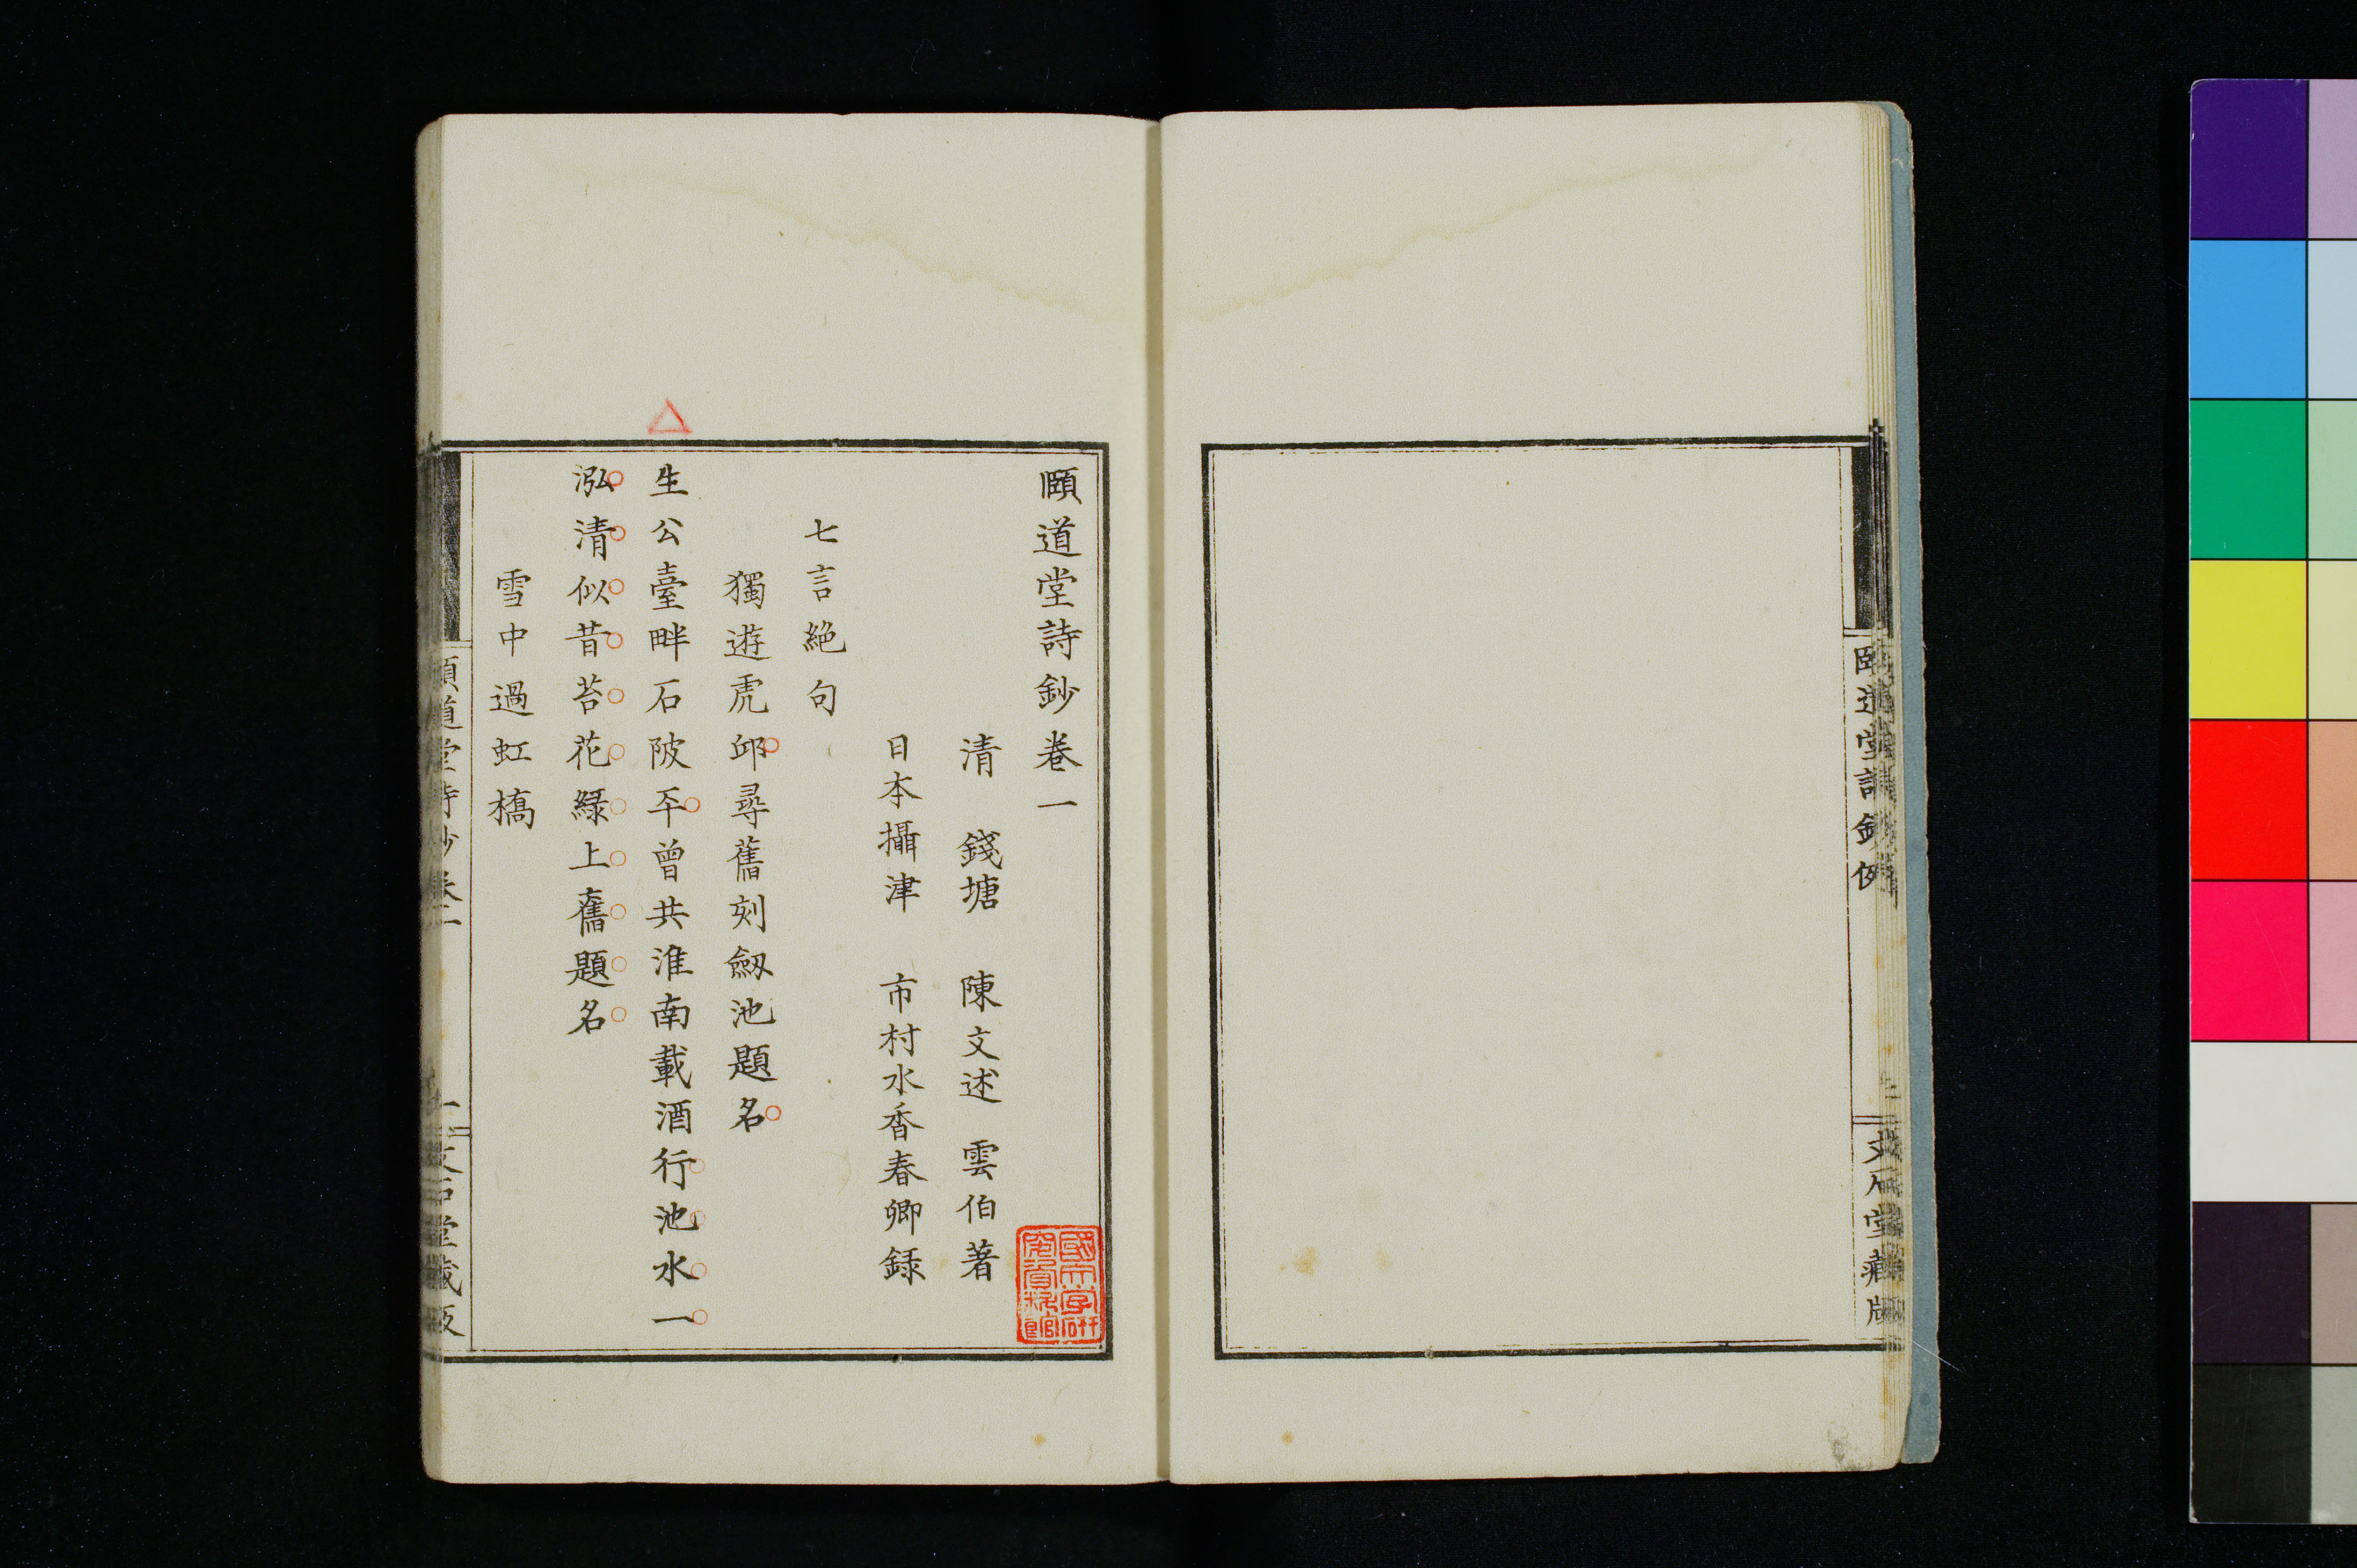 頤道堂詩鈔例
文石堂藏版
頤道堂詩鈔卷一
清　錢塘　陳文述　雲伯著
日本攝津　市村水香春卿録
七言絶句
獨遊虎邱尋舊刻劔池題名
生公臺畔石陂平曾共淮南載酒行池水一
泓清似昔苔花緑上舊題名
雪中過虹橋
頤道堂詩鈔卷一
一
文石堂藏版
國文学研
究資料館